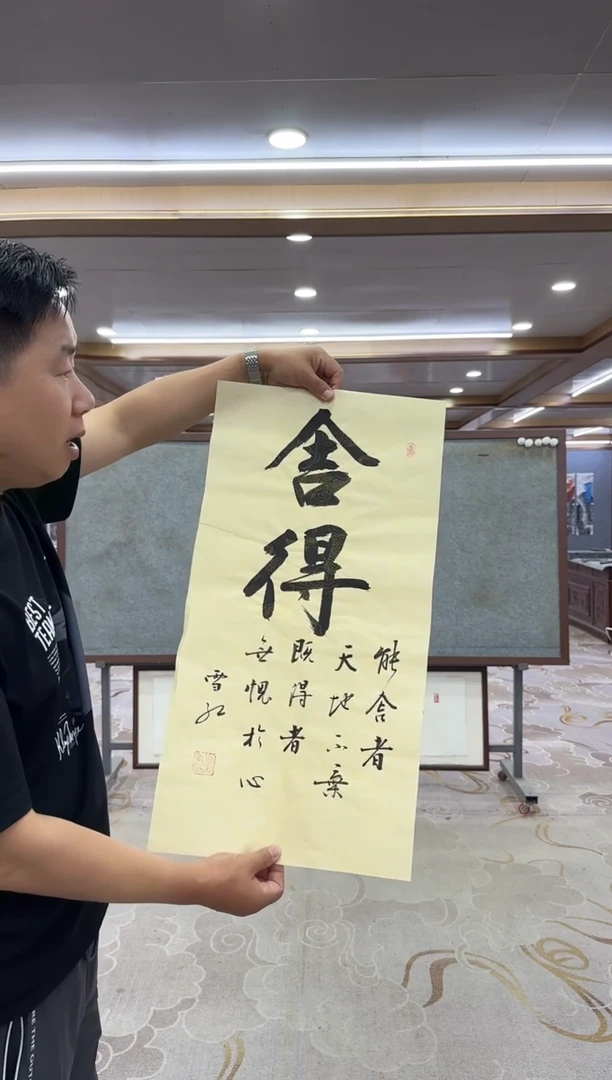 舍得
能舍者
天地不弃
既得者
无愧於心
雪红
BEST
TEAM